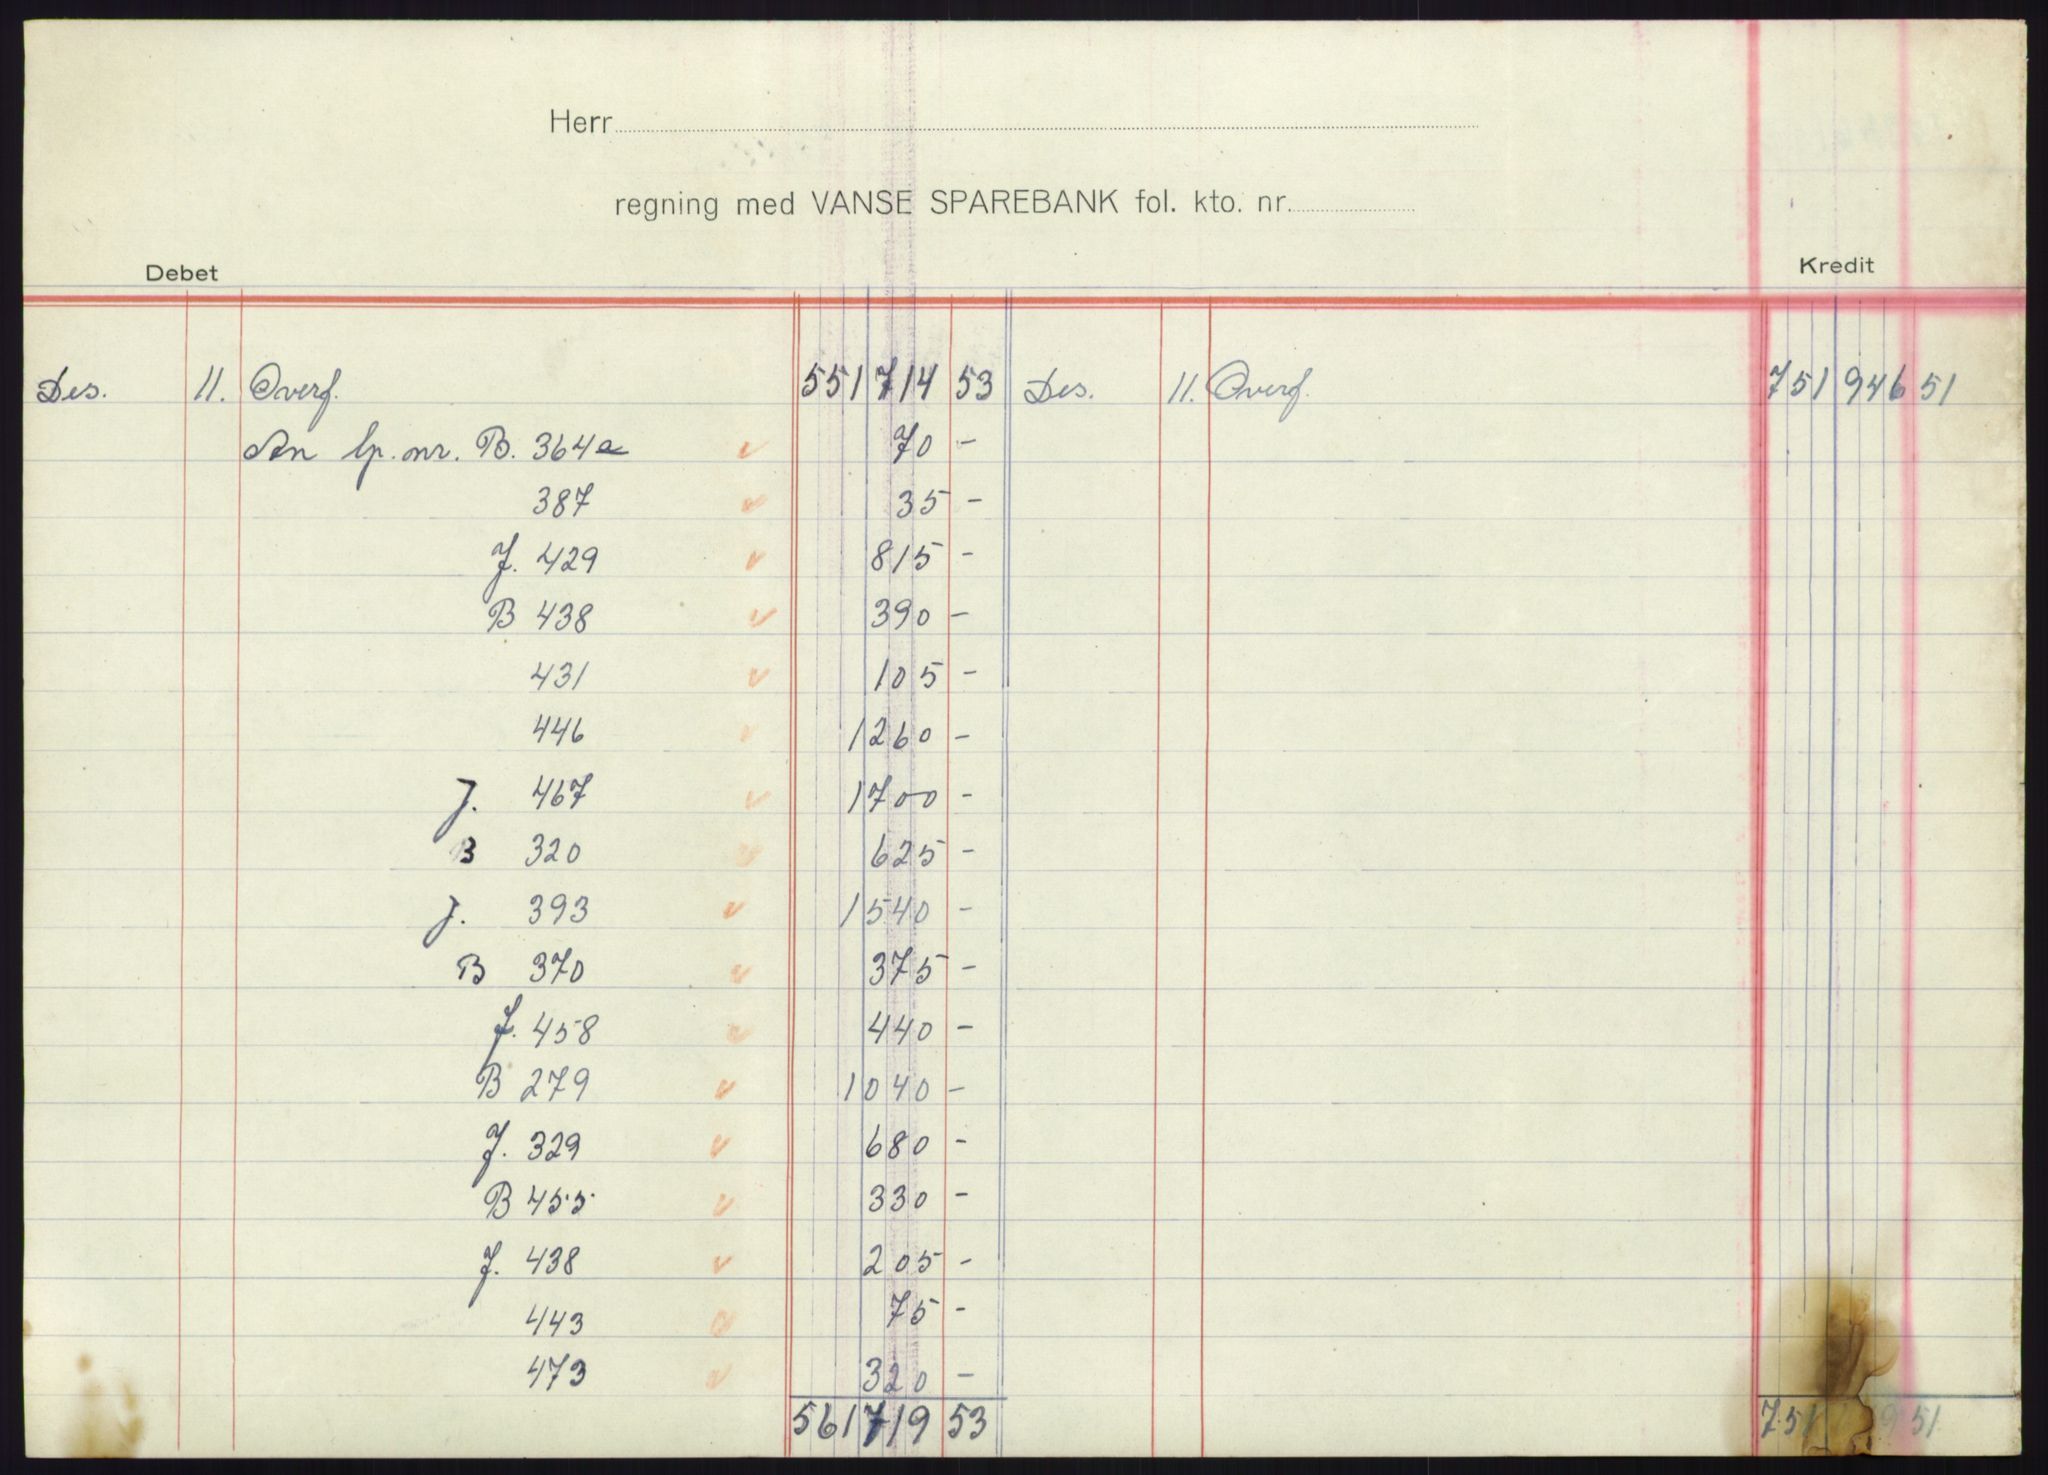 Herr
regning med VANSE SPAREBANK fol. kto. nr.
Debet Kredit
Des. 11. Overf. 551714 53 Des. 11. Overf. 751946 51
An lp. nr. B. 364a 70 -
387 35 -
J. 429 815 -
B 438 390 -
431 105 -
446 1260 -
J. 467 1700 -
B 320 625 -
J. 393 1540 -
B 370 375 -
J. 458 440 -
B 279 1040 -
J. 329 680 -
B 455 330 -
J. 438 205 -
443 75 -
473 320 -
561719 53 751 51